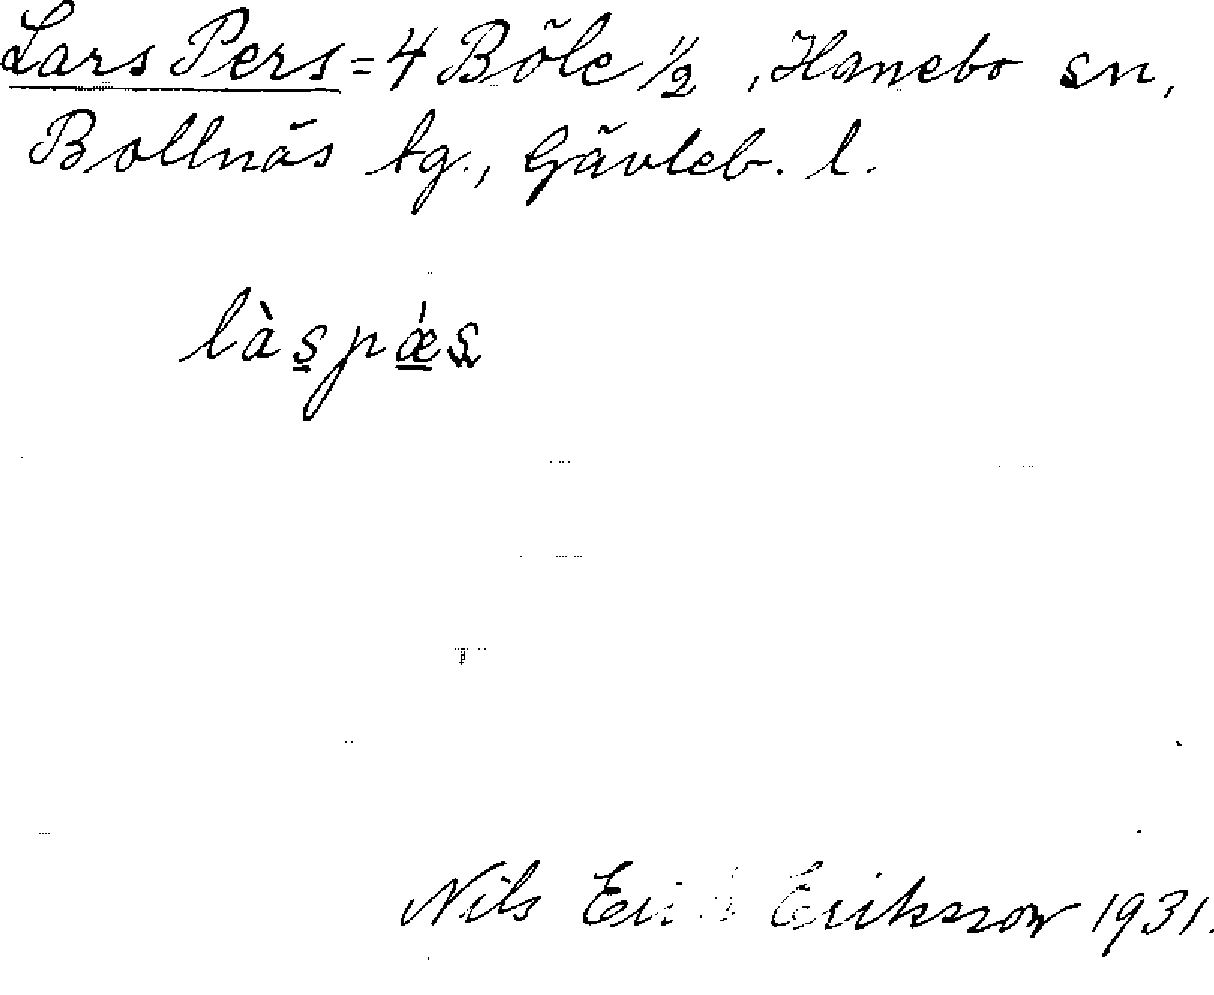 Lars Pers = 4 Böle 1/2, Hanebo sn,
Bollnäs tg., Gävleb. l.
làspǽs
Nils Erik Eriksson 1931.